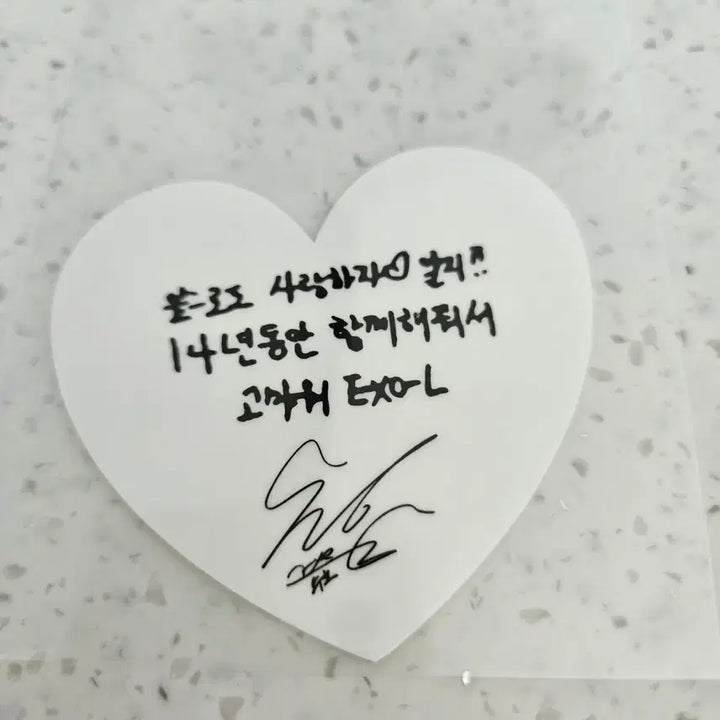 앞으로도 사랑하자♡ 알지!!
14년동안 함께해줘서
고마워 EXO-L